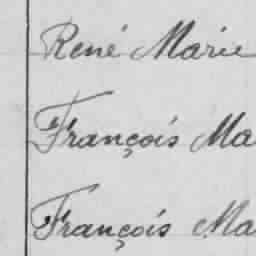 René Marie
François Ma
François Ma